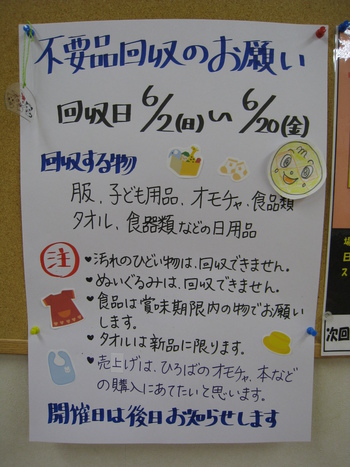 不要品回収のお願い
回収日 6/2(日)〜6/20(金)
回収する物
服、子ども用品、オモチャ、食品類
タオル、食器類などの日用品
注
・汚れのひどい物は、回収できません。
・ぬいぐるみは、回収できません。
・食品は賞味期限内の物でお願い
します。
・タオルは新品に限ります。
・売上げは、ひろばのオモチャ、本など
の購入にあてたいと思います。
開催日は後日お知らせします
場
日
ス
次回